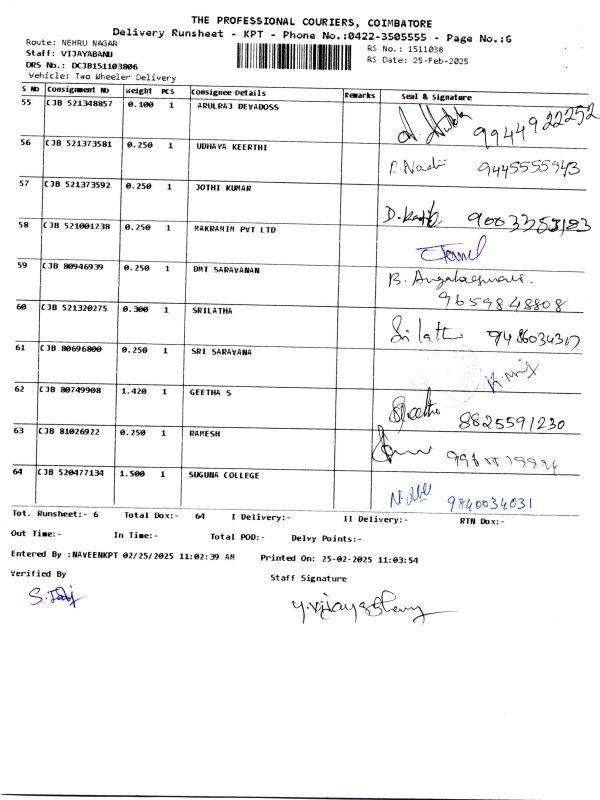 THE PROFESSIONAL COURIERS, COIMBATORE
Delivery Runsheet - KPT - Phone No.:0422-3505555 - Page No.:6
Route: NEHRU NAGAR
RS No.: 1511038
Staff: VIJAYABANU
RS Date: 25-Feb-2025
DRS No.: DCJB151103806
Vehicle: Two Wheeler Delivery
S No Consignment No Weight PCS Consignee Details Remarks Seal & Signature
55 CJB 521348857 0.100 1 ARULRAJ DEVADOSS 9944922252
56 CJB 521373581 0.250 1 UDHAYA KEERTHI 9445555943
57 CJB 521373592 0.250 1 JOTHI KUMAR
58 CJB 521001238 0.250 1 MAKRANIM PVT LTD
59 CJB 80946939 0.250 1 DMT SARAVANAN
9659848808
60 CJB 521320275 0.300 1 SRILATHA Srilatha
61 CJB 80696800 0.250 1 SRI SARAVANA
62 CJB 80749908 1.420 1 GEETHA S 8825591230
63 CJB 81026922 0.250 1 RAMESH
64 CJB 520477134 1.500 1 SUGUNA COLLEGE 9840034031
Tot. Runsheet:- 6 Total Dox:- 64 I Delivery:- II Delivery:- RTN Dox:-
Out Time:- In Time:- Total POD:- Delvy Points:-
Entered By :NAVEENKPT 02/25/2025 11:02:39 AM Printed On: 25-02-2025 11:03:54
Verified By
Staff Signature